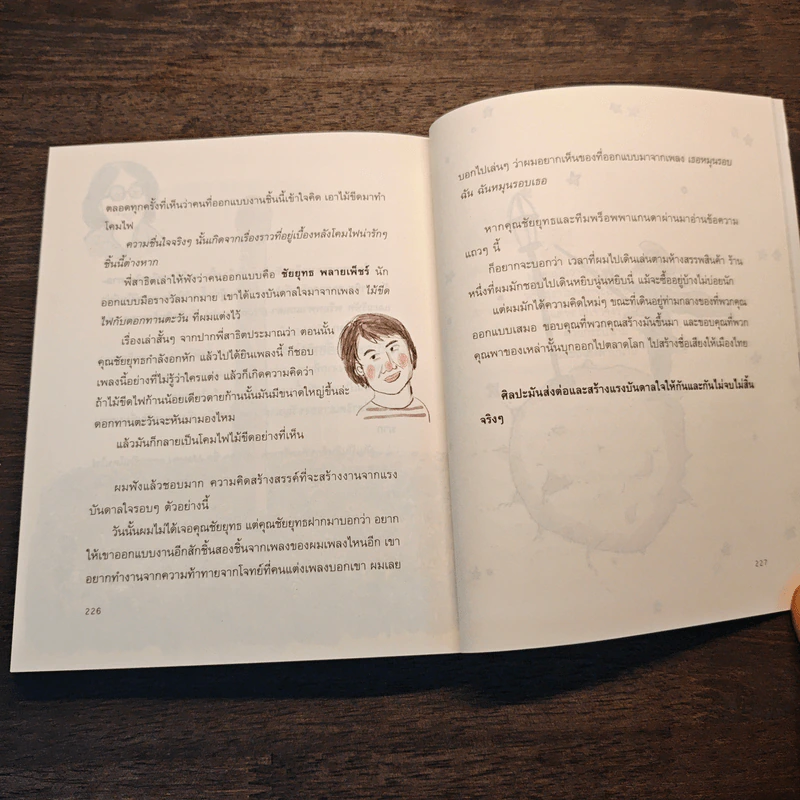 ตลอดทุกครั้งที่เห็นว่าคนที่ออกแบบงานชิ้นนี้เข้าใจคิด เอาไม้ขีดมาทำ
โคมไฟ
ความชื่นใจจริงๆ นั้นเกิดจากเรื่องราวที่อยู่เบื้องหลังโคมไฟน่ารักๆ
ชิ้นนี้ต่างหาก
พี่สาธิตเล่าให้ฟังว่าคนออกแบบคือ ชัยยุทธ พลายเพ็ชร์ นัก
ออกแบบมือรางวัลมากมาย เขาได้แรงบันดาลใจมาจากเพลง ไม้ขีด
ไฟกับดอกทานตะวัน ที่ผมแต่งไว้
เรื่องเล่าสั้นๆ จากปากพี่สาธิตประมาณว่า ตอนนั้น
คุณชัยยุทธกำลังอกหัก แล้วไปได้ยินเพลงนี้ ก็ชอบ
เพลงนี้อย่างที่ไม่รู้ว่าใครแต่ง แล้วก็เกิดความคิดว่า
ถ้าไม้ขีดไฟก้านน้อยเดียวดายก้านนั้นมันมีขนาดใหญ่ขึ้นล่ะ
ดอกทานตะวันจะหันมามองไหม
แล้วมันก็กลายเป็นโคมไฟไม้ขีดอย่างที่เห็น
ผมฟังแล้วชอบมาก ความคิดสร้างสรรค์ที่จะสร้างงานจากแรง
บันดาลใจรอบๆ ตัวอย่างนี้
วันนั้นผมไม่ได้เจอคุณชัยยุทธ แต่คุณชัยยุทธฝากมาบอกว่า อยาก
ให้เขาออกแบบงานอีกสักชิ้นสองชิ้นจากเพลงของผมเพลงไหนอีก เขา
อยากทำงานจากความท้าทายจากโจทย์ที่คนแต่งเพลงบอกเขา ผมเลย
226
บอกไปเล่นๆ ว่าผมอยากเห็นของที่ออกแบบมาจากเพลง เธอหมุนรอบ
ฉัน ฉันหมุนรอบเธอ
หากคุณชัยยุทธและทีมพร็อพพาแกนดาผ่านมาอ่านข้อความ
แถวๆ นี้
ก็อยากจะบอกว่า เวลาที่ผมไปเดินเล่นตามห้างสรรพสินค้า ร้าน
หนึ่งที่ผมมักชอบไปเดินหยิบนู่นหยิบนี่ แม้จะซื้ออยู่บ้างไม่บ่อยนัก
แต่ผมมักได้ความคิดใหม่ๆ ขณะที่เดินอยู่ท่ามกลางของที่พวกคุณ
ออกแบบเสมอ ขอบคุณที่พวกคุณสร้างมันขึ้นมา และขอบคุณที่พวก
คุณพาของเหล่านั้นบุกออกไปตลาดโลก ไปสร้างชื่อเสียงให้เมืองไทย
ศิลปะมันส่งต่อและสร้างแรงบันดาลใจให้กันและกันไม่จบไม่สิ้น
จริงๆ
227